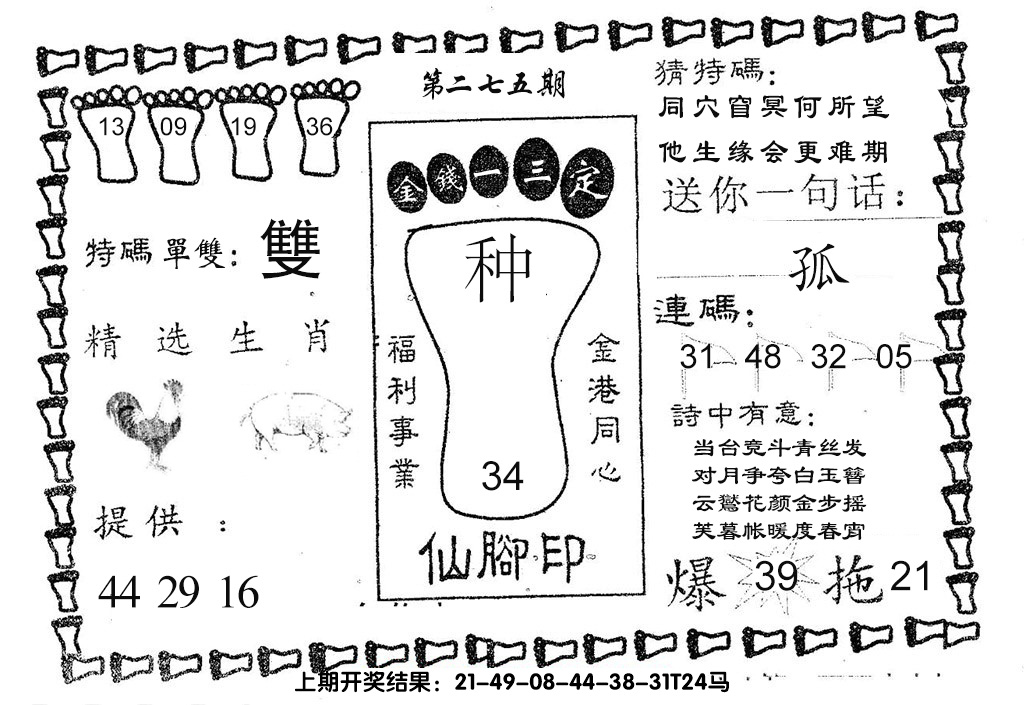 第二七五期
13 09 19 36
特碼單雙：雙
精选生肖
提供：
44 29 16
金錢一三定
种
福利事業
金港同心
34
仙腳印
猜特碼：
同穴窅冥何所望
他生缘会更难期
送你一句话：
孤
連碼：
31 48 32 05
詩中有意：
当台竞斗青丝发
对月争夸白玉簪
云鬢花颜金步摇
芙暮帐暖度春宵
爆 39 拖 21
上期开奖结果：21-49-08-44-38-31T24马